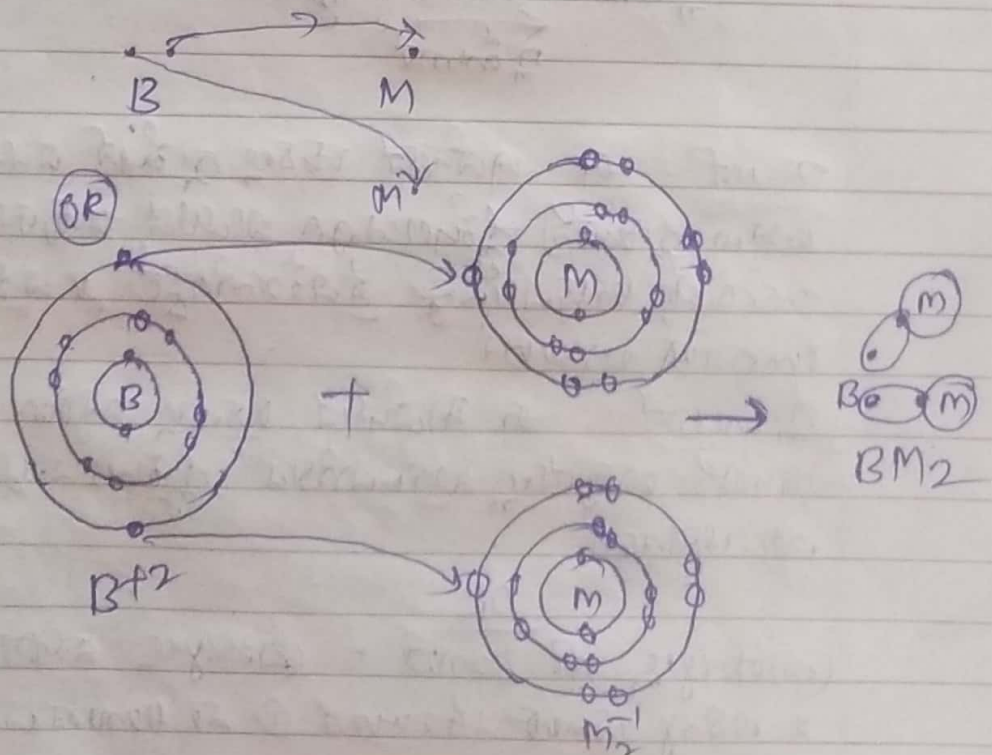 B M
M
OR
M
B
+
M
B M
BM2
B+2
M
M2-1